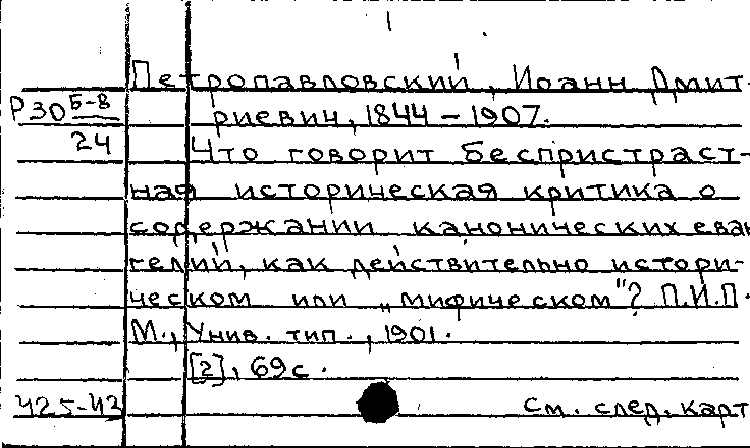 Петропавловский, Иоанн Дмит-
Р30 Б-8/24
риевич, 1844 – 1907.
Что говорит беспристраст-
ная историческая критика о
содержании канонических еван
гелий, как действительно истори-
ческом или „мифическом"? П.И.П.
М., Унив. тип., 1901.
[2], 69 с.
См. след. карт